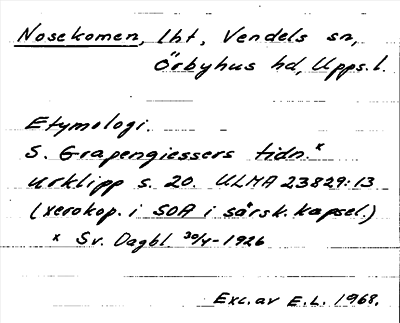 Nosekomen, lht, Vendels sn,
Örbyhus hd, Upps. l.
Etymologi.
S. Grapengiessers tidn. x
urklipp s. 20. ULMA 23829:13
(xerokop. i SOA i särsk. kapsel.)
x Sv. Dagbl 30/4-1926
Exc. av E.L. 1968.